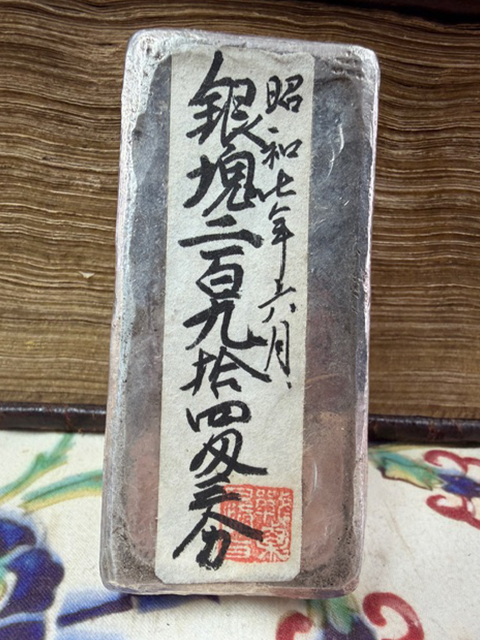 昭和七年六月
銀塊二百九拾四匁三分